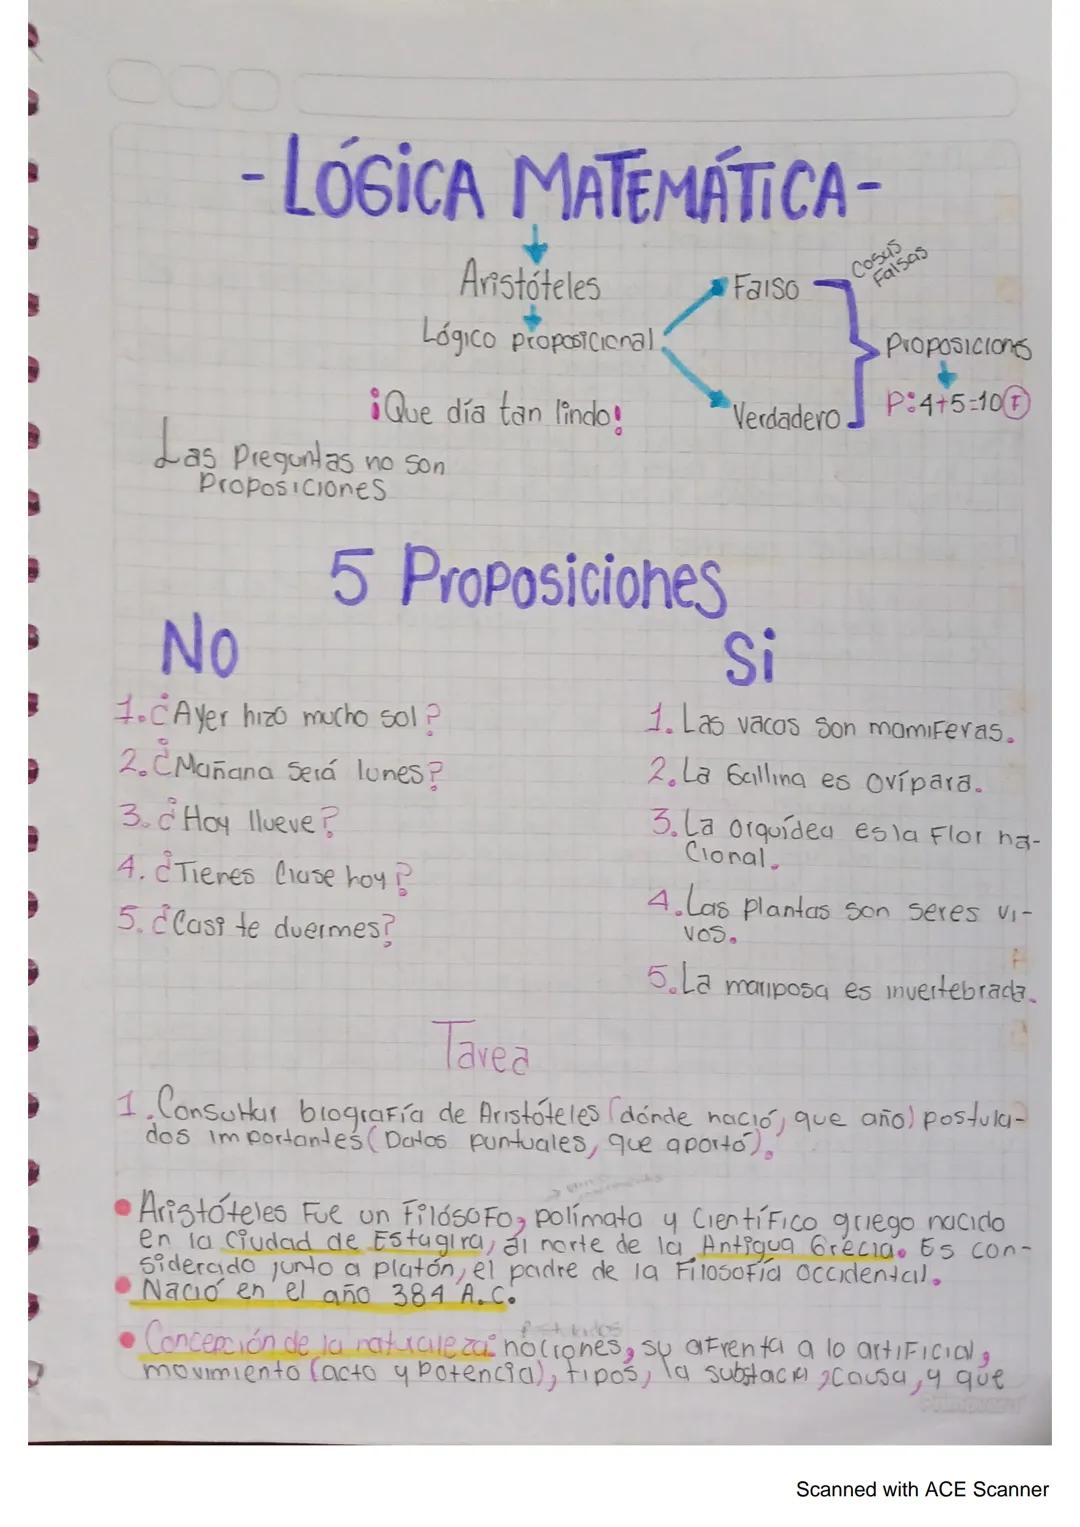 -LÓGICA MATEMÁTICA-
Aristóteles
Lógico proposicional
Falso
Verdadero
Cosas
Falsas
Proposicions
P:4+5=10 F
¡Que día tan lindo!
Las Preguntas no son
Proposiciones
5 Proposiciones
No
1.¿Ayer hizo mucho sol?
2.¿Mañana Será lunes?
3.¿Hoy llueve?
4.¿Tienes Clase hoy?
5.¿Casi te duermes?
Si
1.Las vacas son mamiferas.
2.La Gallina es ovípara.
3.La orquídea es la Flor na-
cional.
4.Las plantas son seres vi-
vos.
5.La mariposa es invertebrada.
Tarea
1.Consultar biografía de Aristóteles (dónde nació, que año) postula-
dos importantes (Datos puntuales, que aportó).
Aristóteles Fue un Filósofo, polímata y Científico griego nacido
en la Ciudad de Estagira, al norte de la Antigua Grecia. Es con-
siderado junto a platón, el padre de la Filosofía occidental.
Nació en el año 384 A.C.
Concepción de la naturaleza: nociones, su afrenta a lo artificial,
movimiento (acto y potencia), tipos, la substacia, causa, y que
Scanned with ACE Scanner